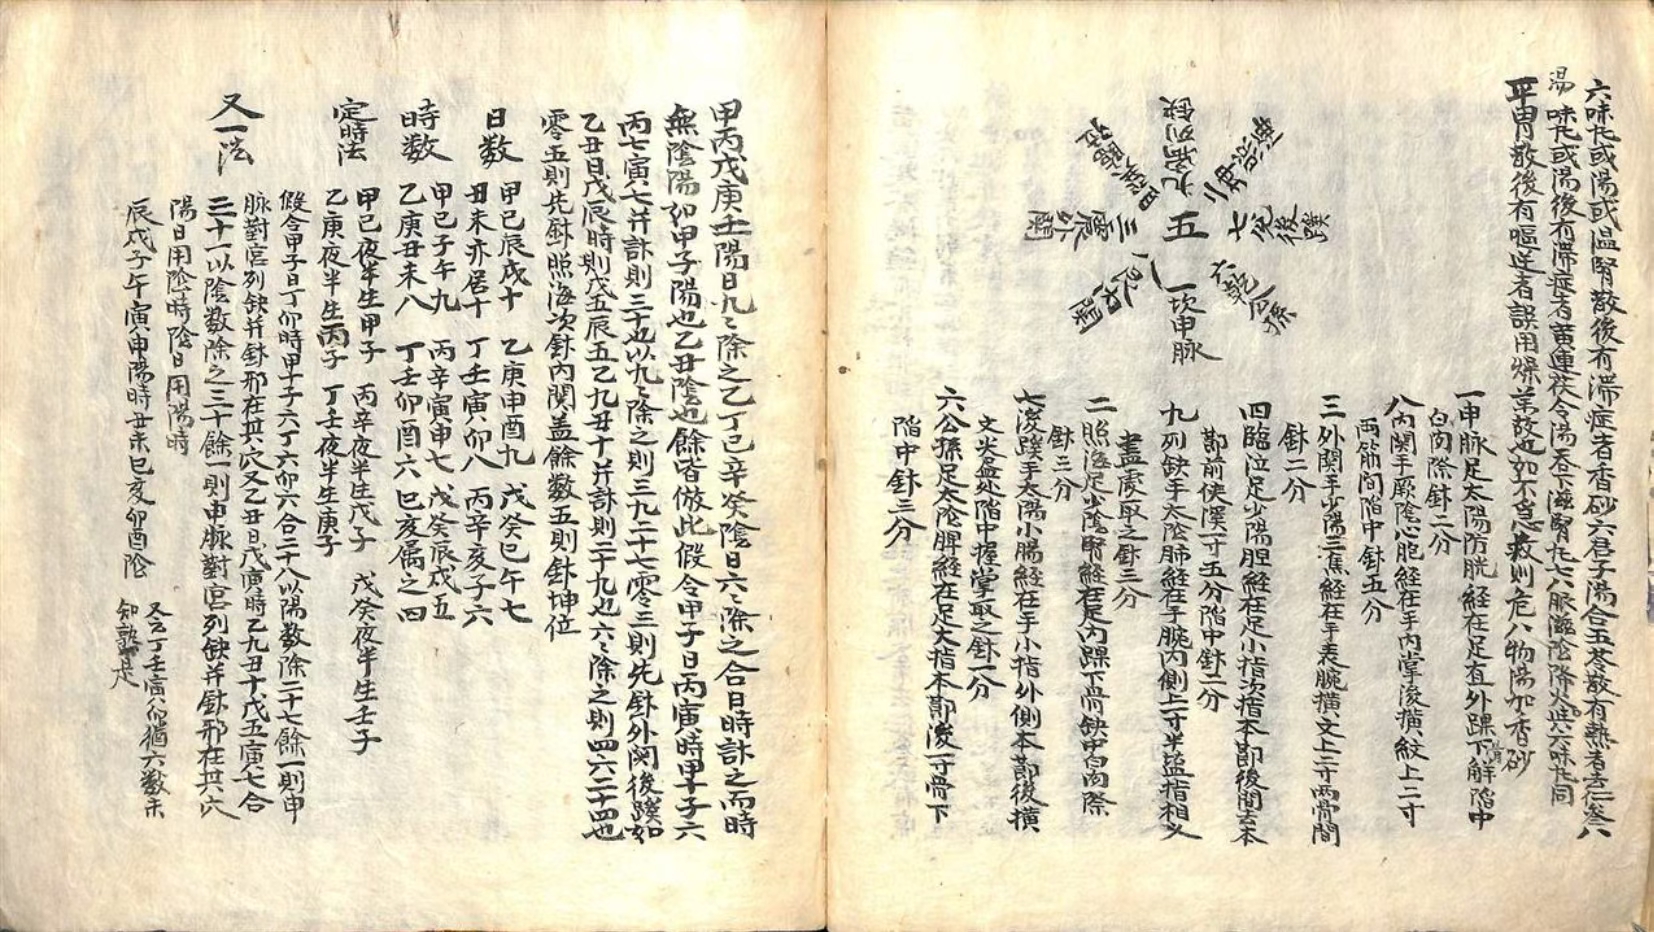 六味元或湯或温腎散後有滯症者香砂六君子湯合五苓散有熱者去仁參八
湯 味元或湯後有滯症者黃連茯令湯吞下滋腎元七八脉滋陰降火與六味元同
平胃散後有嘔逆者誤用燥薬故也如不急救則危八物湯加香砂
九離列缺
二坤照海
七兌後蹊
六乾公孫
一坎申脉
八艮內関
三震外関
四巽臨泣
五
一申脉足太陽防胱経在足有外踝下觧陷中
白肉際針二分
八內関手厥陰心胞経在手內掌後横紋上二寸
両筋间陷中針五分
三外関手少陽三焦経在手表腕横文上二寸両骨間
針二分
四臨泣足少陽胆経在足小指次指本節後間去本
節前侠溪一寸五分陷中針二分
九列缺手太陰肺経在手腕內側上一寸半塩指相叉
盡處取之針三分
二照海足少陰腎経在足內踝下骨缺中白肉際
針三分
七後蹊手太陽小腸経在手小指外側本節後横
文尖盡处陷中握掌取之針一分
六公孫足太陰脾経在足大指本節後一寸骨下
陷中針三分
甲丙戊庚壬陽日九〻除之乙丁己辛癸陰日六〻除之合日時計之而時
無陰陽如甲子陽也乙丑陰也餘皆倣此假令甲子日丙寅時甲十子六
丙七寅七并計則三十也以九〻除之則三九二十七零三則先針外関後蹊如
乙丑日戊辰時則戊五辰五乙九丑十并計則二十九也六〻除之則四六二十四也
零五則先針照海次針內関盖餘数五則針坤位
日数
甲己辰戌十 乙庚申酉九 戊癸巳午七
丑未亦居十 丁壬寅卯八 丙辛亥子六
時数
甲己子午九 丙辛寅申七 戊癸辰戌五
乙庚丑未八 丁壬卯酉六 巳亥属之四
定時法
甲己夜半生甲子 丙辛夜半生戊子 戊癸夜半生壬子
乙庚夜半生丙子 丁壬夜半生庚子
假令甲子日丁卯時甲十子六丁六卯六合二十八以陽数除二十七餘一則申
脉對宮列缺并針邪在其穴又乙丑日戊寅時乙九丑十戊五寅七合
又一法
三十一以陰数除之三十餘一則申脉對宮列缺并針邪在其穴
陽日用陰時陰日用陽時
辰戌子午寅申陽時丑未巳亥卯酉陰
又云丁壬寅八卯猶六数未
知孰是